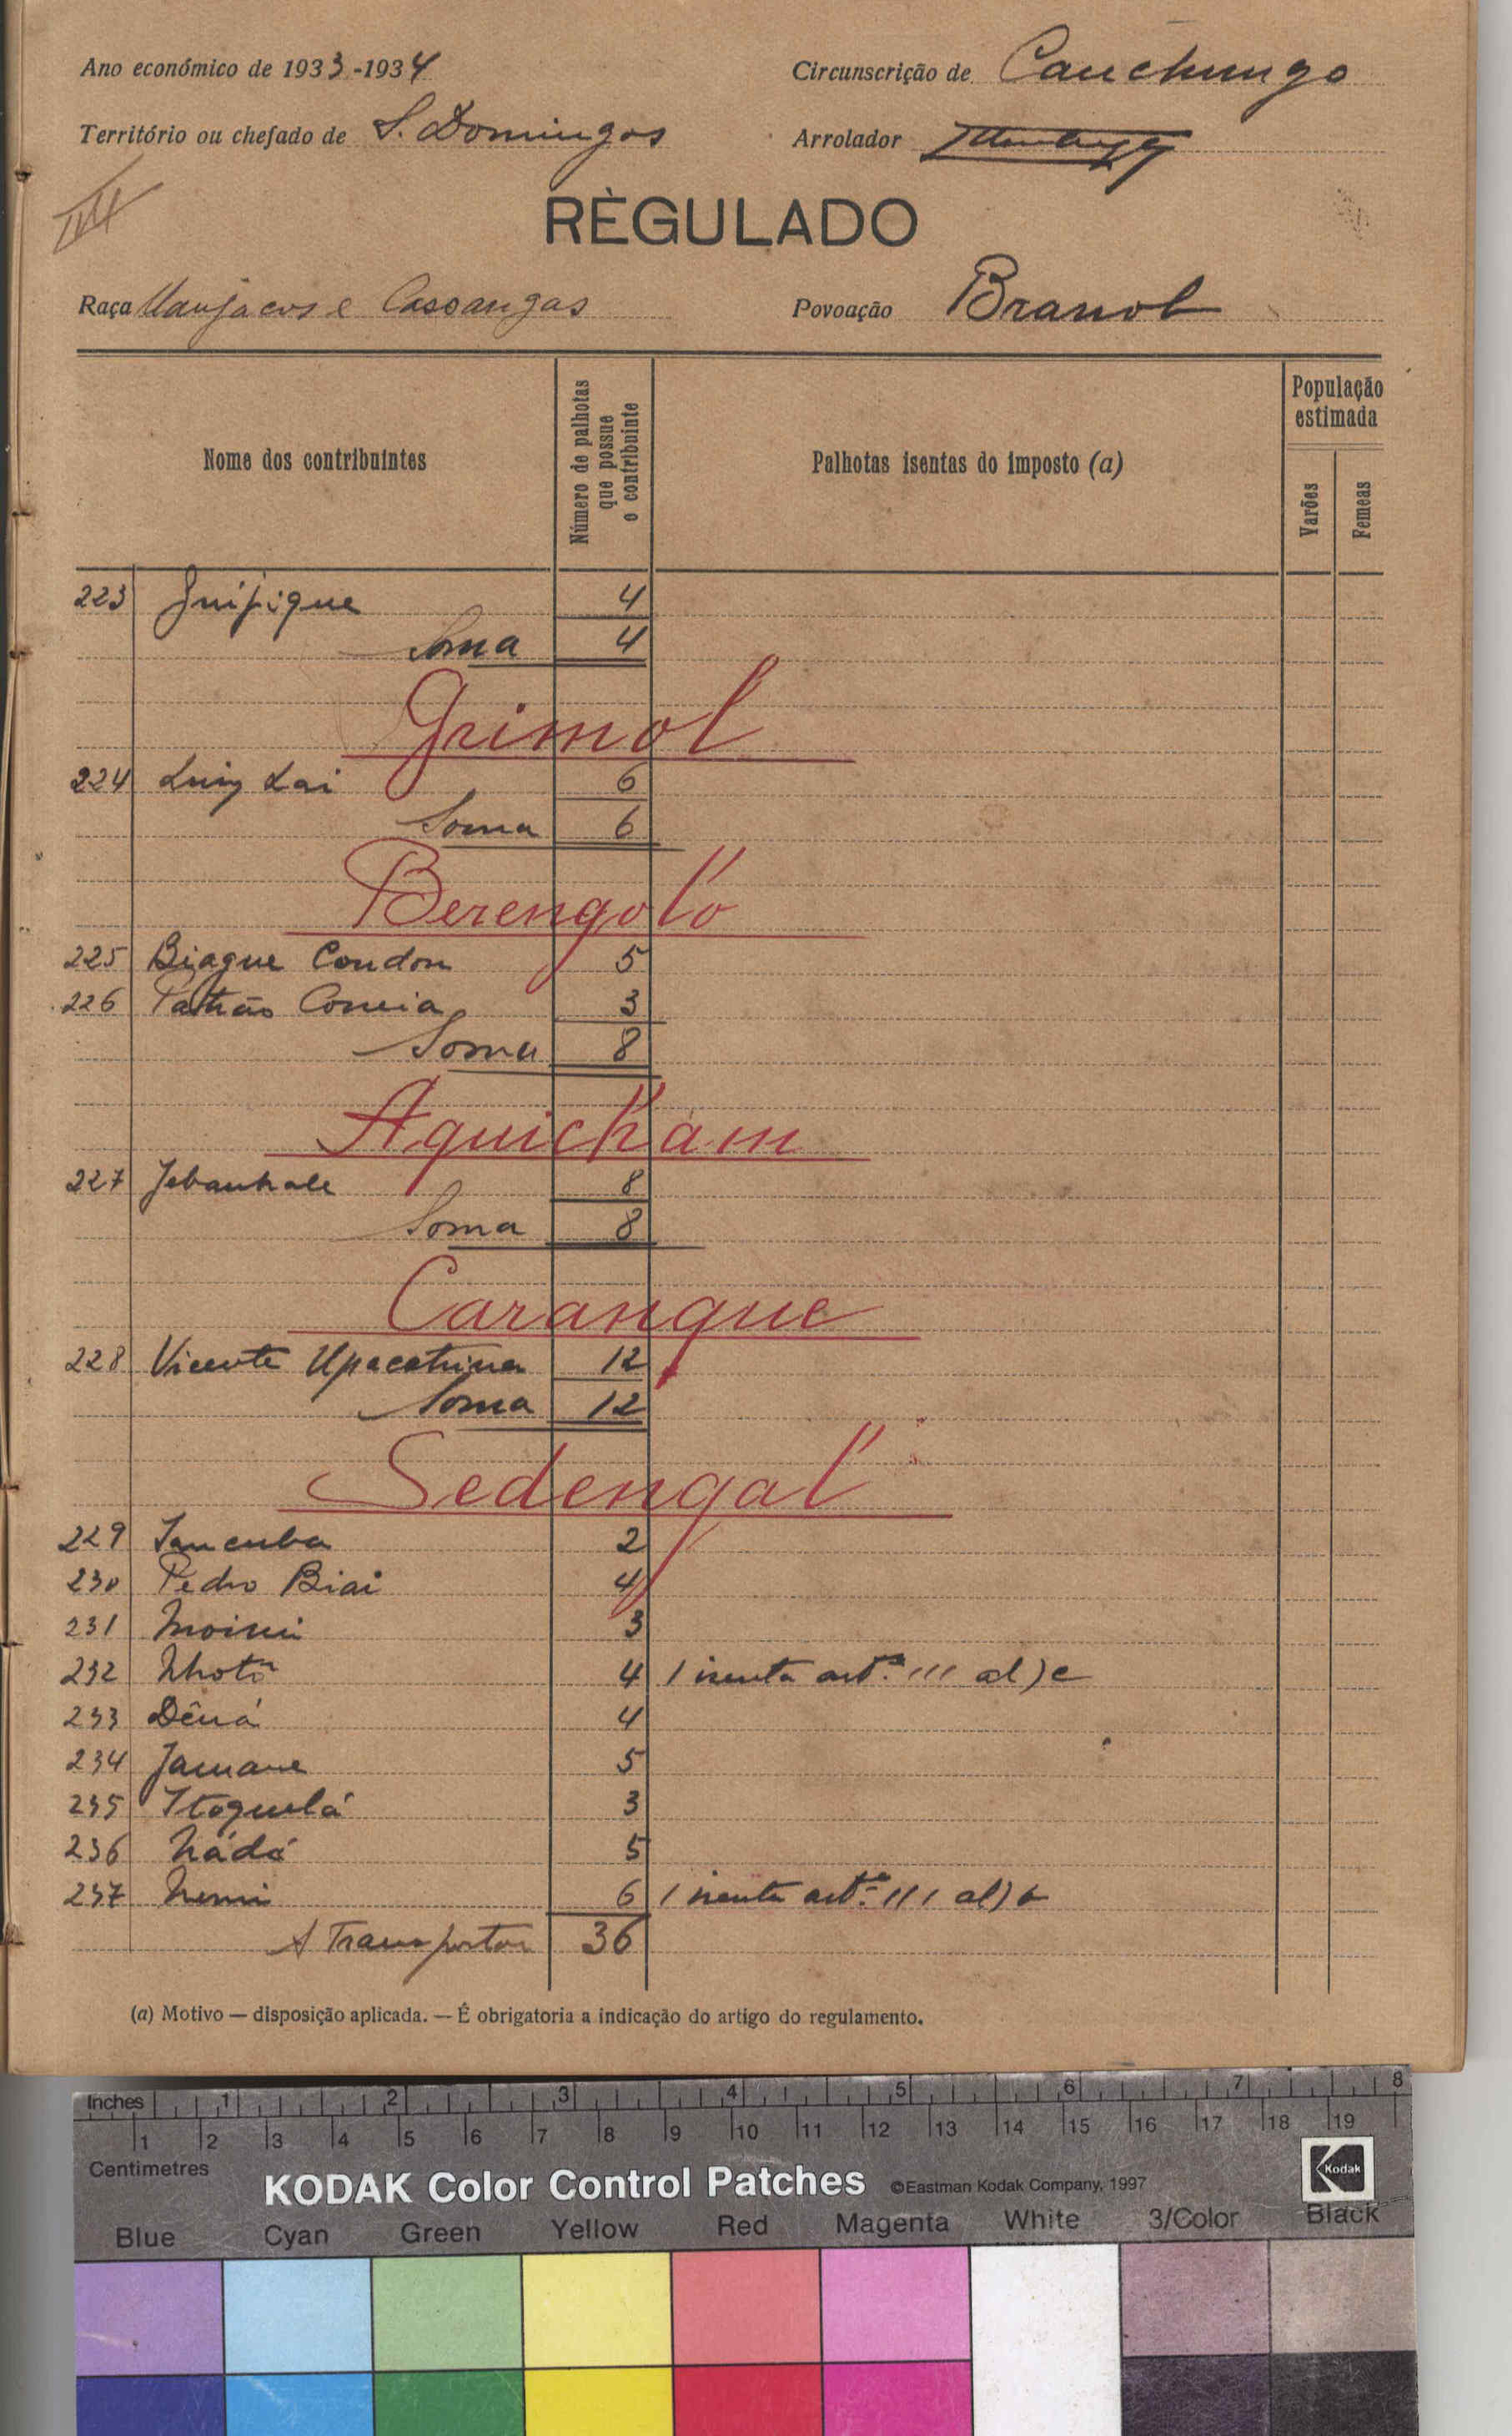 Ano económico de 1933-1934
Circunscrição de Cauchungo
Território ou chefado de S. Domingos
Arrolador
RÈGULADO
Raça Manjacos e Cassangas
Povoação Branol
Nome dos contribuintes
Número de palhotas que possue o contribuinte
Palhotas isentas do imposto (a)
População estimada
Varões
Femeas
223 4
Soma 4
Grimol
224 Luiz Lai 6
Soma 6
Berengoló
225 Biague Condon 5
226 Patrão Correia 3
Soma 8
Aquichám
227 8
Soma 8
Caranque
228 Vicente 12
Soma 12
Sedengal
229 2
230 Pedro Biai 4
231 3
232 Nhotó 4 1 isenta artº. 111 al) c
233 Dêná 4
234 5
235 3
236 Nádá 5
237 6 1 isenta artº. 111 al)
A Transportar 36
(a) Motivo — disposição aplicada. — É obrigatoria a indicação do artigo do regulamento.
Inches 1 2 3 4 5 6 7 8
1 2 3 4 5 6 7 8 9 10 11 12 13 14 15 16 17 18 19
Centimetres
KODAK Color Control Patches ©Eastman Kodak Company, 1997
Kodak
Blue Cyan Green Yellow Red Magenta White 3/Color Black